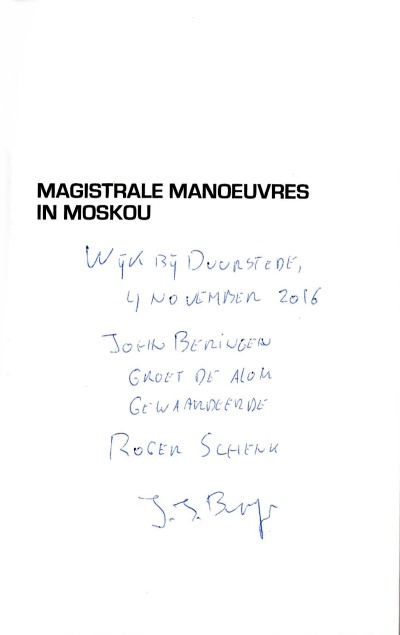 MAGISTRALE MANOEUVRES
IN MOSKOU
WIJK BIJ DUURSTEDE,
4 NOVEMBER 2016
JOHN BERINGEN
GROET DE ALOM
GEWAARDEERDE
ROGER SCHENK
J.J. B